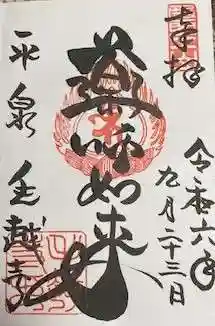 奉拝
令和六年
九月二十三日
薬師如来
平泉
毛越寺